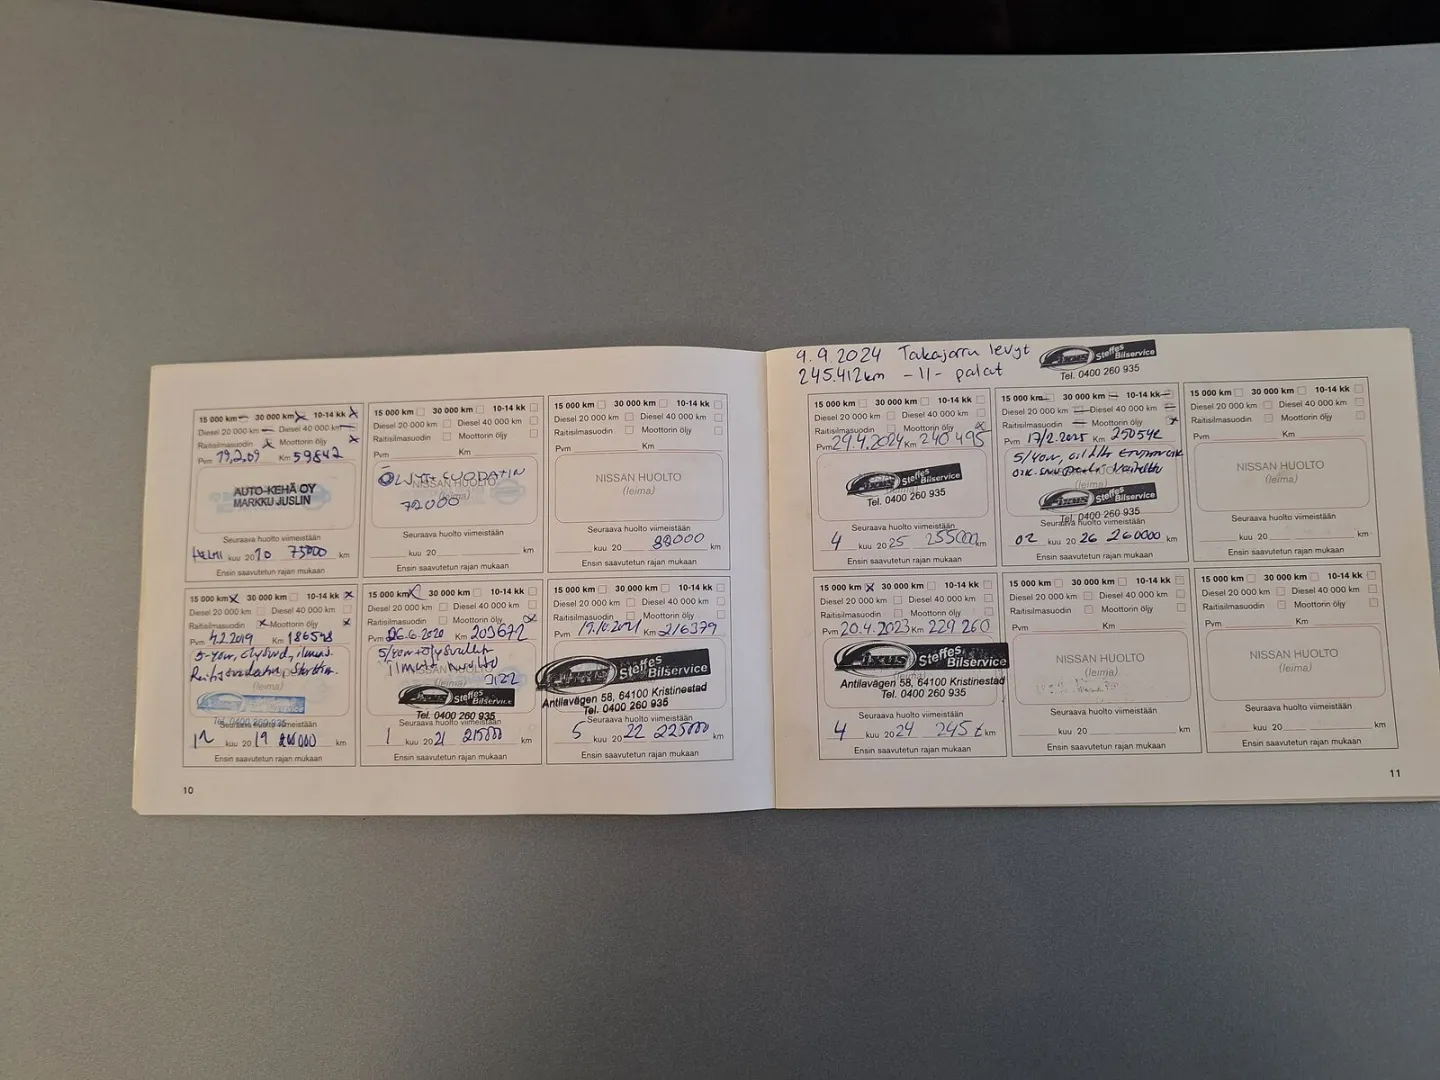 15 000 km 30 000 km 10-14 kk
Diesel 20 000 km Diesel 40 000 km
Raitisilmasuodin Moottorin öljy
Pvm 19,2,09 Km 59842
AUTO-KEHÄ OY
MARKKU JUSLIN
Seuraava huolto viimeistään
HELMI kuu 2010 75000 km
Ensin saavutetun rajan mukaan
15 000 km 30 000 km 10-14 kk
Diesel 20 000 km Diesel 40 000 km
Raitisilmasuodin Moottorin öljy
Pvm Km
ÖLJY+SUODATIN
NISSAN HUOLTO
(leima)
72000
Seuraava huolto viimeistään
kuu 20 km
Ensin saavutetun rajan mukaan
15 000 km 30 000 km 10-14 kk
Diesel 20 000 km Diesel 40 000 km
Raitisilmasuodin Moottorin öljy
Pvm Km
NISSAN HUOLTO
(leima)
Seuraava huolto viimeistään
kuu 20 88000 km
Ensin saavutetun rajan mukaan
15 000 km 30 000 km 10-14 kk
Diesel 20 000 km Diesel 40 000 km
Raitisilmasuodin Moottorin öljy
Pvm 4.2.2019 Km
5-40w,
(leima)
Tel. 0400 260 935
Seuraava huolto viimeistään
12 kuu 2019 km
Ensin saavutetun rajan mukaan
15 000 km 30 000 km 10-14 kk
Diesel 20 000 km Diesel 40 000 km
Raitisilmasuodin Moottorin öljy
Pvm 26.6.2020 Km 203672
5/40w+
huolto
NISSAN HUOLTO
(leima)
Fixus Steffes Bilservice
Tel. 0400 260 935
Seuraava huolto viimeistään
1 kuu 2021 215000 km
Ensin saavutetun rajan mukaan
15 000 km 30 000 km 10-14 kk
Diesel 20 000 km Diesel 40 000 km
Raitisilmasuodin Moottorin öljy
Pvm 19.10.2021 Km 216379
Fixus Steffes Bilservice
Antilavägen 58, 64100 Kristinestad
Tel. 0400 260 935
Seuraava huolto viimeistään
5 kuu 2022 225000 km
Ensin saavutetun rajan mukaan
10
9.9.2024 Takajarru levyt
245.412km -11- palat
Fixus Steffes Bilservice
Tel. 0400 260 935
15 000 km 30 000 km 10-14 kk
Diesel 20 000 km Diesel 40 000 km
Raitisilmasuodin Moottorin öljy
Pvm 29.4.2024 Km 240 495
Fixus Steffes Bilservice
Tel. 0400 260 935
Seuraava huolto viimeistään
4 kuu 2025 255000 km
Ensin saavutetun rajan mukaan
15 000 km 30 000 km 10-14 kk
Diesel 20 000 km Diesel 40 000 km
Raitisilmasuodin Moottorin öljy
Pvm 17/2.2025 Km 250542
5/40w,
(leima)
Fixus Steffes Bilservice
Tel. 0400 260 935
Seuraava huolto viimeistään
02 kuu 2026 260000 km
Ensin saavutetun rajan mukaan
15 000 km 30 000 km 10-14 kk
Diesel 20 000 km Diesel 40 000 km
Raitisilmasuodin Moottorin öljy
Pvm Km
NISSAN HUOLTO
(leima)
Seuraava huolto viimeistään
kuu 20 km
Ensin saavutetun rajan mukaan
15 000 km 30 000 km 10-14 kk
Diesel 20 000 km Diesel 40 000 km
Raitisilmasuodin Moottorin öljy
Pvm 20.4.2023 Km 229 260
Fixus Steffes Bilservice
Antilavägen 58, 64100 Kristinestad
Tel. 0400 260 935
Seuraava huolto viimeistään
4 kuu 2024 245 t km
Ensin saavutetun rajan mukaan
15 000 km 30 000 km 10-14 kk
Diesel 20 000 km Diesel 40 000 km
Raitisilmasuodin Moottorin öljy
Pvm Km
NISSAN HUOLTO
(leima)
Seuraava huolto viimeistään
kuu 20 km
Ensin saavutetun rajan mukaan
15 000 km 30 000 km 10-14 kk
Diesel 20 000 km Diesel 40 000 km
Raitisilmasuodin Moottorin öljy
Pvm Km
NISSAN HUOLTO
(leima)
Seuraava huolto viimeistään
kuu 20 km
Ensin saavutetun rajan mukaan
11